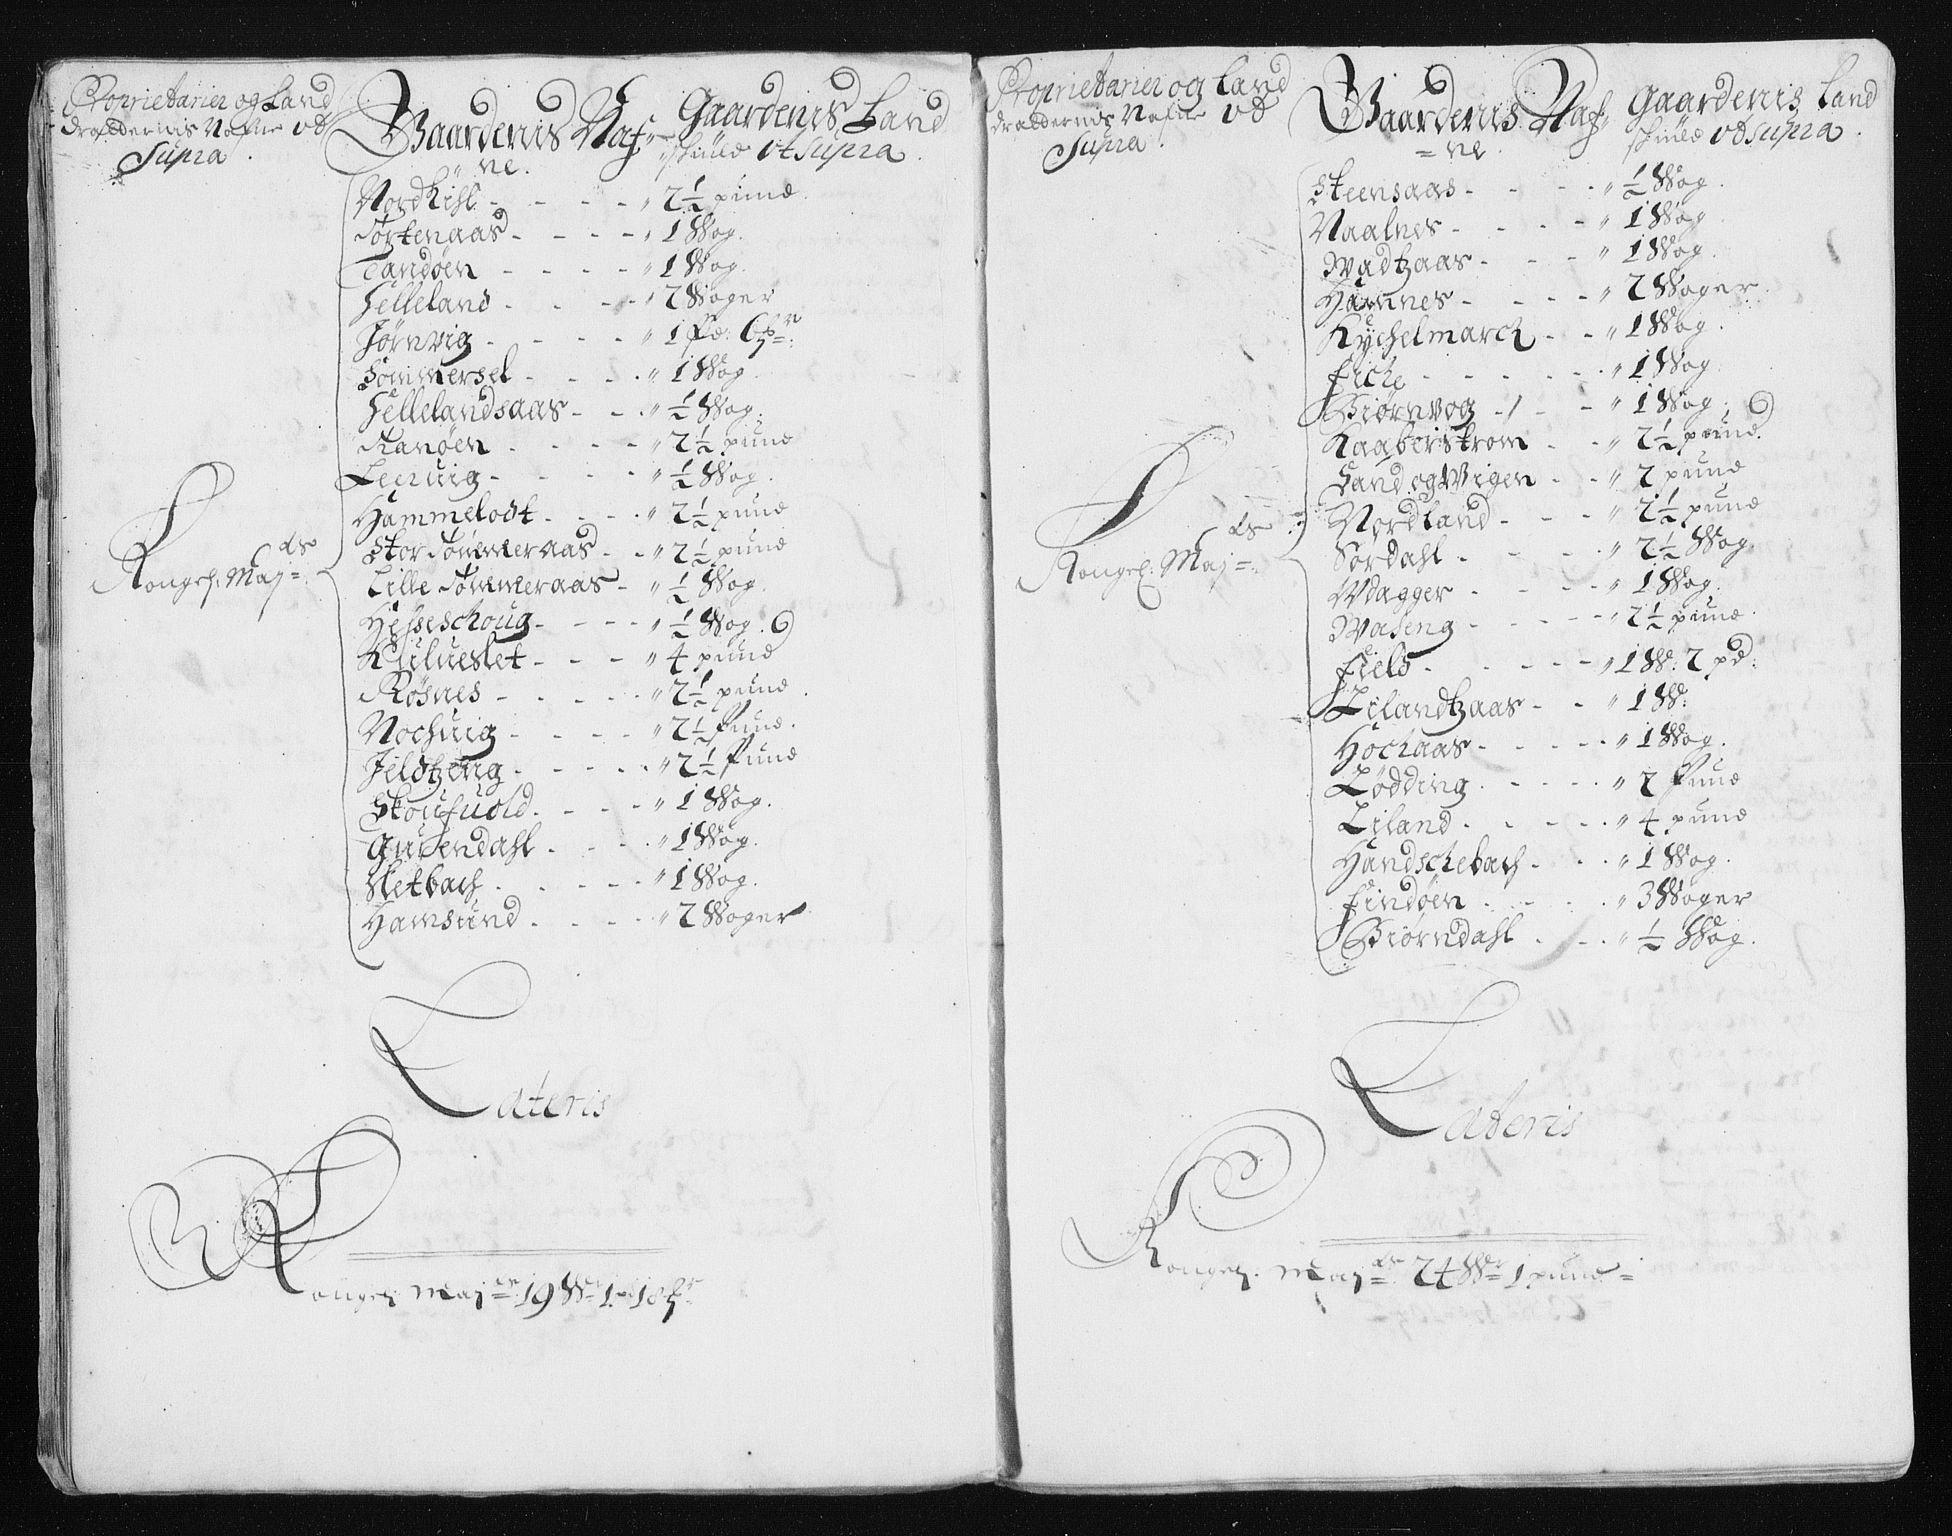 Proprietarier og Land
dratternis Nafne ut
Supra.
Gaardenis Naf=
ne.
Gaardenis Land
skÿld ut Supra.
Nordkihl - - - - „ 2½ pund
Tortenaas - - - - „ 1 Wog.
Tandöen - - - - „ 1 Wog.
Helleland - - - - „ 2 Woger
Jørnvig - - - - „ 1 Pd: 6
Sommersel - - - - „ 1 Wog.
Hellelandsaas - - - „ ½ Wog.
Ranöen - - - - „ 2½ pund
Leeruig - - - - „ ½ Wog.
Hammelodt - - - - „ 2½ pund
Stor Tømmeraas - - „ 2½ pund
Lille Tømmeraas - „ ½ Wog.
Hesseschoug - - - - „ ½ Wog.
Kulueslet - - - „ 4 pund
Røsnes - - - - „ 2½ pund.
Nochuig - - - - „ 2½ Pund.
Jeldtzeng - - - - „ 2½ Pund
Skoufuold - - - „ 1 Wog.
Gurendahl - - - - „ 1 Wog.
Sletbach - - - - „ 1 Wog.
Hamsund - - - - „ 2 Woger
Kongel: Maj=ds
Lateris
Kongel: Maj=ds 19 W 1 pd 18
Proprietarier og Land
dratternis Nafne ut
Supra.
Gaardenis Naf=
=ne.
Gaardenis Land
skÿld ut Supra.
Steensaas - - - - „ ½ Wog.
Naalnes - - - - „ 1 Wog.
Wadtzaas - - - „ 1 Wog.
Hamnes - - - - „ 2 Woger.
Kychelmarck - - „ 1 Wog.
Eiche - - - - - „ 1 Wog
Biørnvog - - - „ 1 Wog.
Kaaberstrom - - „ 2½ pund.
Sand og Wigen - - „ 2 pund
Nordland - - - „ 2½ pund
Sordahl - - - - „ 2½ Wog
Wdagger - - - - „ 1 Wog.
Waseng - - - - „ 2½ pund.
Field - - - - - „ 1 W: 2 pd:
Lilandtzaas - - „ 1 W:
Hochaas - - - - - „ 1 Wog.
Lødding - - - - „ 2 Pund
Liland - - - - „ 4 pund
Handschebach - - - „ 1 Wog.
Findøen - - - - „ 3 Woger
Biørndahl - - - „ ½ Wog.
Kongel: Maj=ds
Lateris
Kongel: Maj=ds 24 W 1 pund